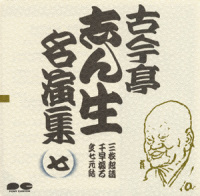 古今亭
志ん生
名演集
七
三枚起請
千早振る
文七元結